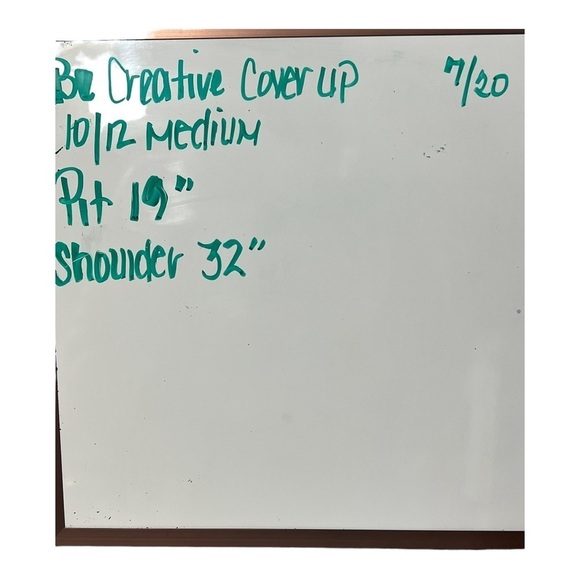 Be Creative Cover up 7/20
10/12 Medium
Pit 19"
Shoulder 32"